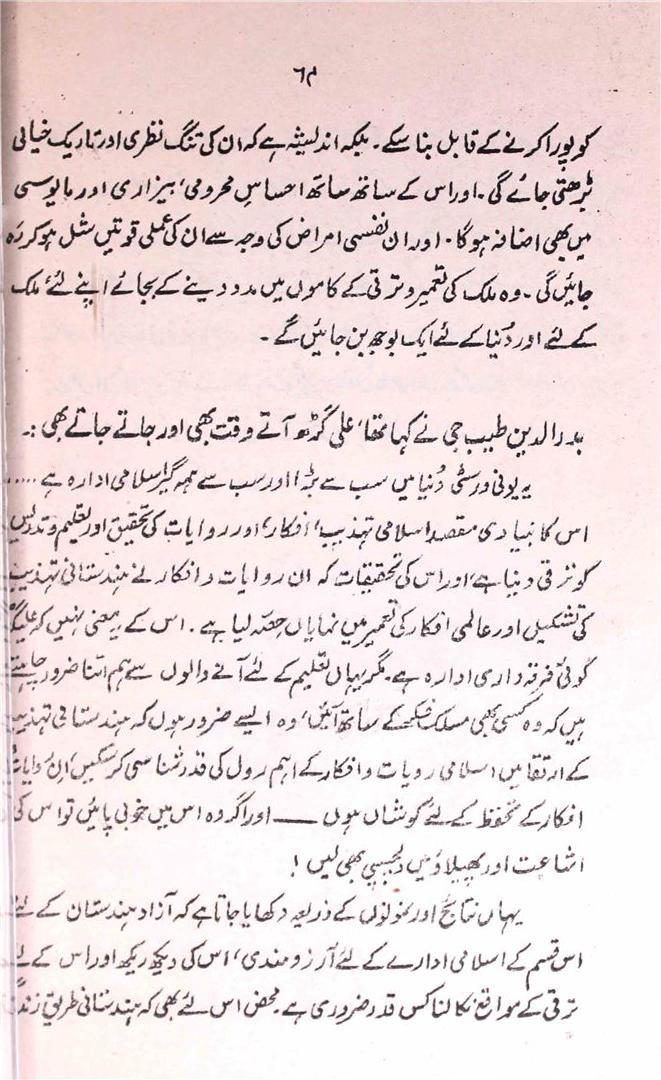 ۶۴
کو پورا کرنے کے قابل بنا سکے۔ بلکہ اندیشہ ہے کہ ان کی تنگ نظری اور تاریک خیالی
بڑھتی جائے گی۔ اور اس کے ساتھ ساتھ احساسِ محرومی، بیزاری اور مایوسی
میں بھی اضافہ ہوگا۔ اور ان نفسی امراض کی وجہ سے ان کی عملی قوتیں شل ہو کر رہ
جائیں گی۔ وہ ملک کی تعمیر و ترقی کے کاموں میں مدد دینے کے بجائے اپنے لئے، ملک
کے لئے اور دُنیا کے لئے ایک بوجھ بن جائیں گے۔
بدرالدین طیب جی نے کہا تھا، علی گڑھ آتے وقت بھی اور جاتے جاتے بھی :۔
یہ یونی ورسٹی دُنیا میں سب سے بڑا اور سب سے ہمہ گیر اسلامی ادارہ ہے .....
اس کا بنیادی مقصد اسلامی تہذیب، افکار، اور روایات کی تحقیق اور تعلیم و تدریس
کو ترقی دینا ہے، اور اس کی تحقیقات کہ ان روایات و افکار نے ہندستانی تہذیب
کی تشکیل اور عالمی افکار کی تعمیر میں نمایاں حصّہ لیا ہے۔ اس کے یہ معنی نہیں کہ علیگڑھ
کوئی فرقہ داری ادارہ ہے۔ مگر یہاں تعلیم کے لئے آنے والوں سے ہم اتنا ضرور چاہتے
ہیں کہ وہ کسی بھی مسلک کے ساتھ آئیں، وہ ایسے ضرور ہوں کہ ہندستانی تہذیب
کے ارتقا میں اسلامی روایات و افکار کے اہم رول کی قدر شناسی کر سکیں، ان روایات
افکار کے تحفظ کے لئے کوشاں ہوں ــــ اور اگر وہ اس میں خوبی پائیں تو اس کی
اشاعت اور پھیلاؤ میں دلچسپی بھی لیں!
یہاں نتائج اور نمونوں کے ذریعہ دکھایا جاتا ہے کہ آزاد ہندستان کے لئے
اس قسم کے اسلامی ادارے کے لئے آرزو مندی، اس کی دیکھ ریکھ اور اس کے لئے
ترقی کے مواقع نکالنا کس قدر ضروری ہے۔ محض اس لئے بھی کہ ہندستانی طریقِ زندگی